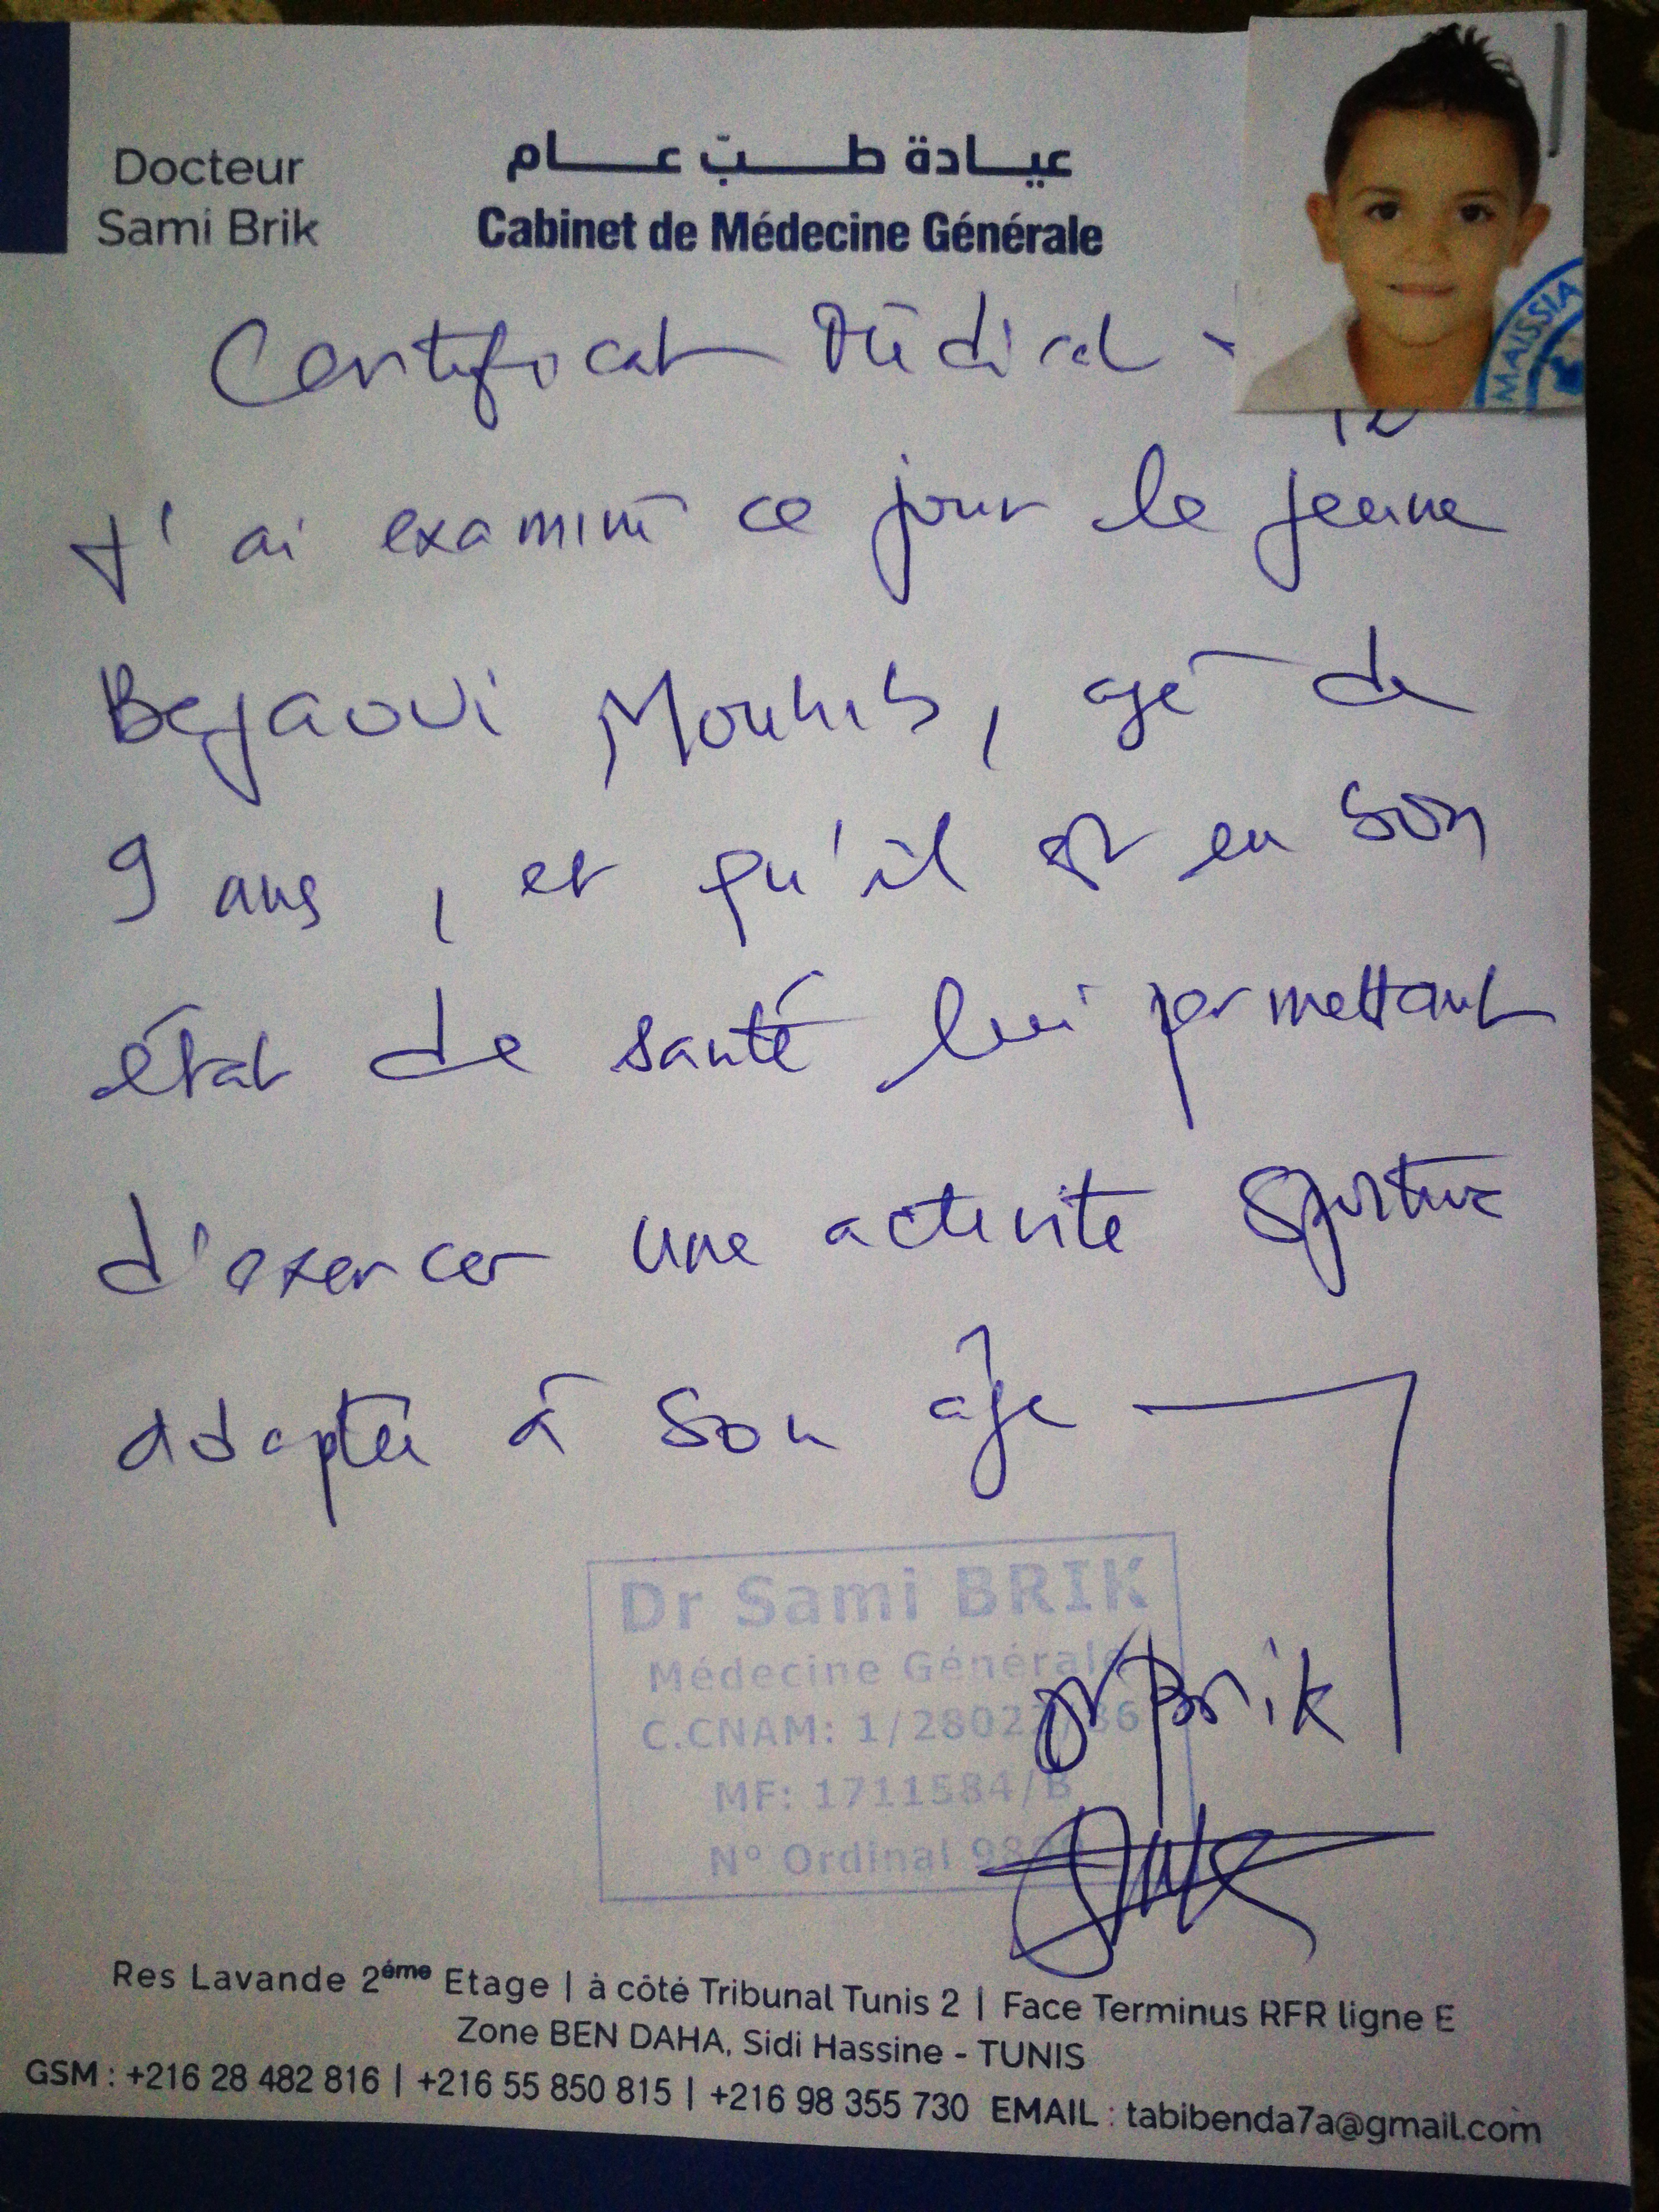 Docteur
Sami Brik
عيادة طبّ عام
Cabinet de Médecine Générale
MAISSIA
Certificat Médical
J'ai examiné ce jour le jeune
Bejaoui Mouhib, agé de
9 ans, et qu'il est en bon
état de santé lui permettant
d'exercer une activité sportive
adaptée à son âge
Dr Sami BRIK
Médecine Générale
C.CNAM: 1/28022/86
MF: 1711584/B
N° Ordinal
Dr Brik
Res Lavande 2éme Etage | à côté Tribunal Tunis 2 | Face Terminus RFR ligne E
Zone BEN DAHA, Sidi Hassine - TUNIS
GSM : +216 28 482 816 | +216 55 850 815 | +216 98 355 730 EMAIL : tabibenda7a@gmail.com